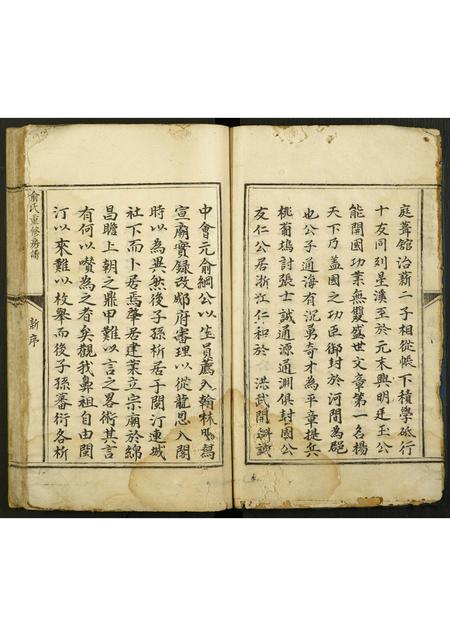 庭葺館治薪二子相從帳下積學砥行
十友同列星溪至於元末與明廷玉公
能開國功業無雙盛世文章第一名揚
天下乃蓋國之功臣御封於河間為郡
也公子通海有沉勇奇才為平章提兵
桃菊塢討張士誠通源通淵俱封國公
友仁公居浙江仁和於 洪武開科誠
中會元俞綱公以生員薦入翰林
宣廟實錄改郕府審理以從龍恩入閣
時以為異然後子孫析居于閩汀連城
社下而卜居焉肇居建業立宗廟於綿
昌瞻上朝之鼎甲難以言之畧術其言
有何以嘖為之者矣觀我鼻祖自由閩
汀以來難以枚舉而後子孫蕃衍各析
俞氏重修房譜
新序